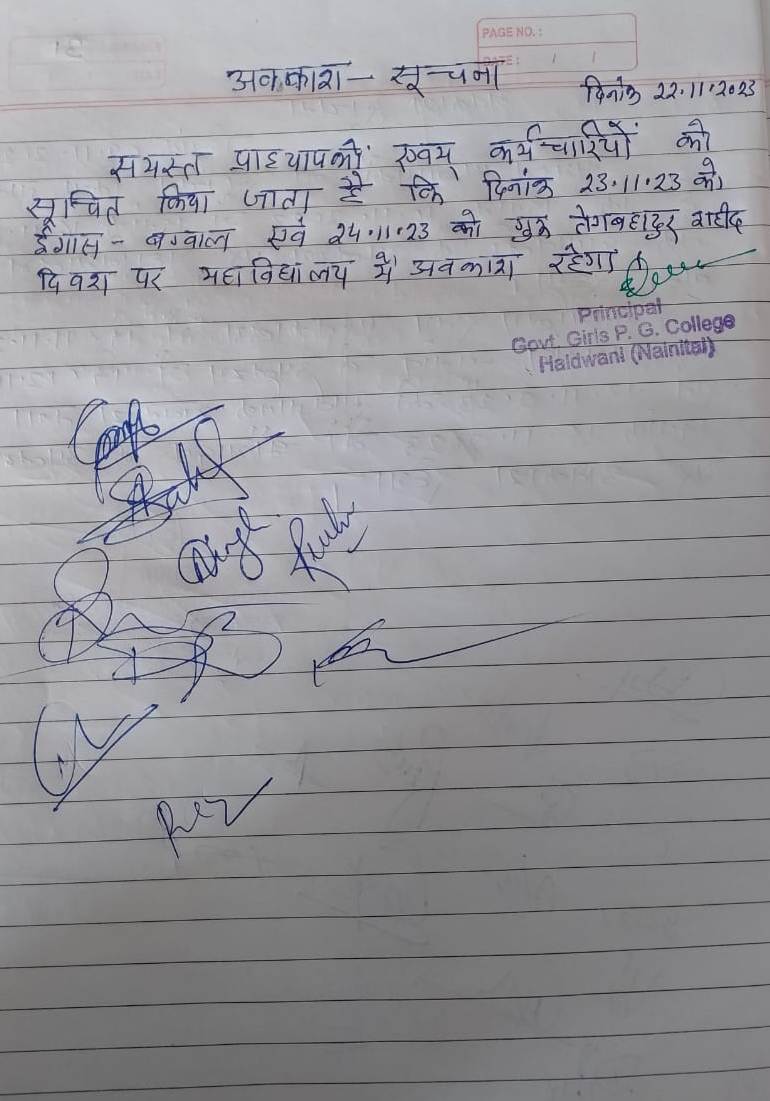 PAGE NO. :
DATE : / /
अवकाश - सूचना
दिनांक 22.11.2023
समस्त प्राध्यापकों एवम् कर्मचारियों को
सूचित किया जाता है कि दिनांक 23.11.23 को
ईगास - बग्वाल एवं 24.11.23 को गुरु तेगबहादुर शहीद
दिवश पर महाविद्यालय में अवकाश रहेगा।
Principal
Govt. Girls P. G. College
Haldwani (Nainital)
Singh